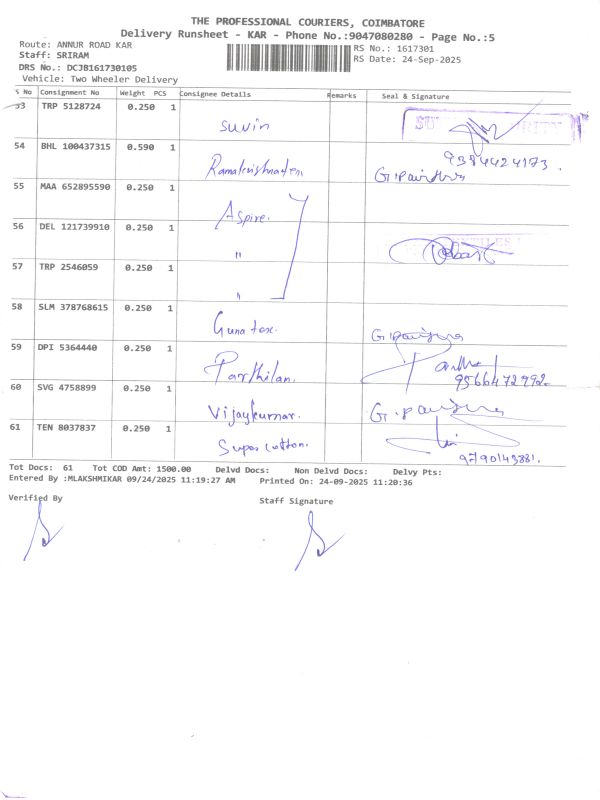 THE PROFESSIONAL COURIERS, COIMBATORE
Delivery Runsheet - KAR - Phone No.:9047080280 - Page No.:5
Route: ANNUR ROAD KAR
RS No.: 1617301
Staff: SRIRAM
RS Date: 24-Sep-2025
DRS No.: DCJB161730105
Vehicle: Two Wheeler Delivery
S No Consignment No Weight PCS Consignee Details Remarks Seal & Signature
53 TRP 5128724 0.250 1
Suvin
9384424173.
54 BHL 100437315 0.590 1
55 MAA 652895590 0.250 1
Aspire.
56 DEL 121739910 0.250 1
"
57 TRP 2546059 0.250 1
"
58 SLM 378768615 0.250 1
Guna tex.
59 DPI 5364440 0.250 1
Parthilan.
9566472992.
60 SVG 4758899 0.250 1
Vijaykumar.
61 TEN 8037837 0.250 1
Super cotton.
9790143881.
Tot Docs: 61 Tot COD Amt: 1500.00 Delvd Docs: Non Delvd Docs: Delvy Pts:
Entered By :MLAKSHMIKAR 09/24/2025 11:19:27 AM Printed On: 24-09-2025 11:20:36
Verified By
Staff Signature